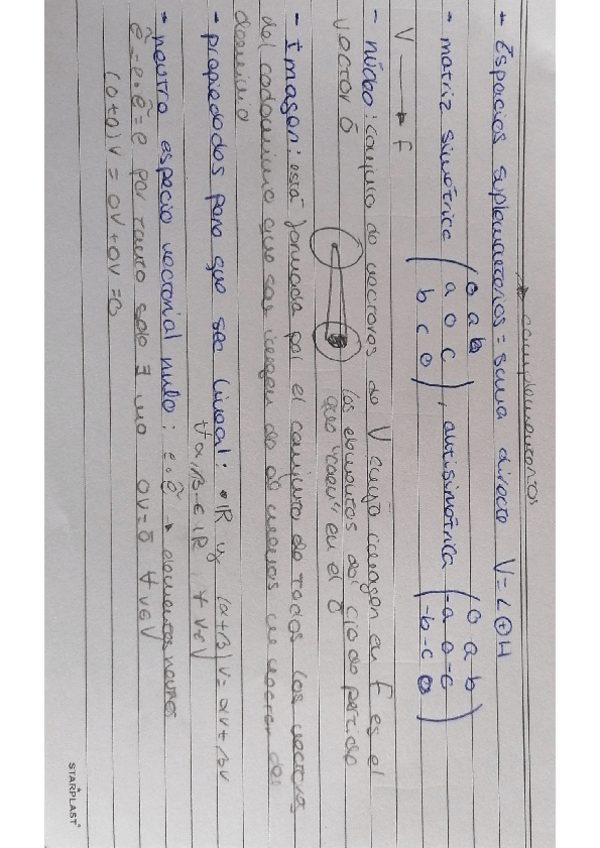 complementarios
- Espacios suplementarios = suma directa V = L ⊕ H
- matriz simétrica ( 0 a b
a 0 c
b c 0 ) , antisimétrica ( 0 a b
-a 0 -c
-b -c 0 )
V → f
- núcleo: conjunto de vectores de V cuya imagen en f es el
vector 0̄
los elementos del cjo de partida
que "caen" en el 0̄
- Imagen: está formada por el conjunto de todos los vectores
del codominio que son imagen de al menos un vector del
dominio
- propiedades para que sea lineal: • IR (α+β)v = αv + βv
∀ α, β ∈ IR, ∀ v ∈ V
- neutro espacio vectorial nulo: e · ê → elementos neutros
ê = e · ê = e por tanto solo ∃ uno 0v = 0̄ ∀ v ∈ V
(0+0)v = 0v + 0v = 0
STARPLAST